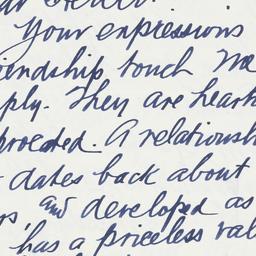 Your expressions
iendship touch me
ply. They are heart
A relationsh
dates back about
and developed as
has a priceless val